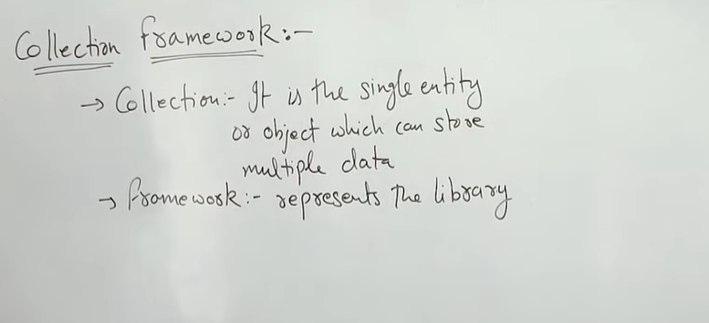 Collection framework:-
→ Collection:- It is the single entity
or object which can store
multiple data
→ framework:- represents the library